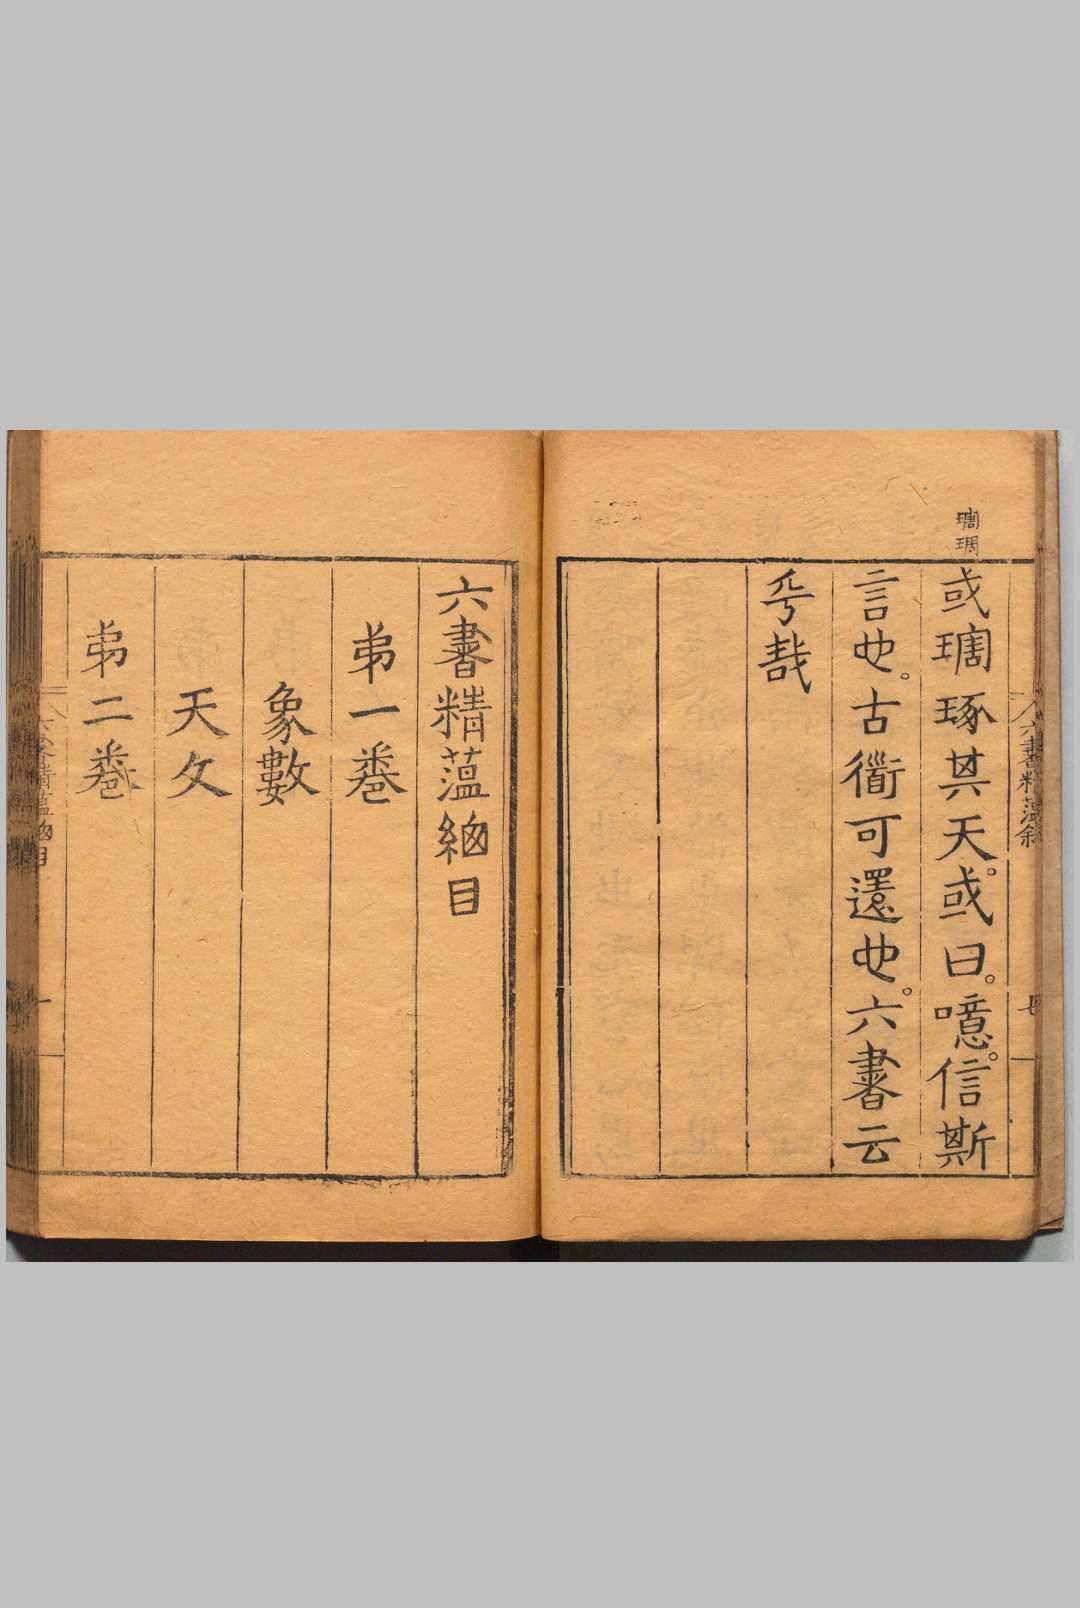 琱
或琱琢其天。或曰。噫。信斯
言也。古衟可還也。六書云
乎哉
六書精薀敘
七
六書精薀總目
弟一卷
象數
天文
弟二卷
六書精薀總目
一